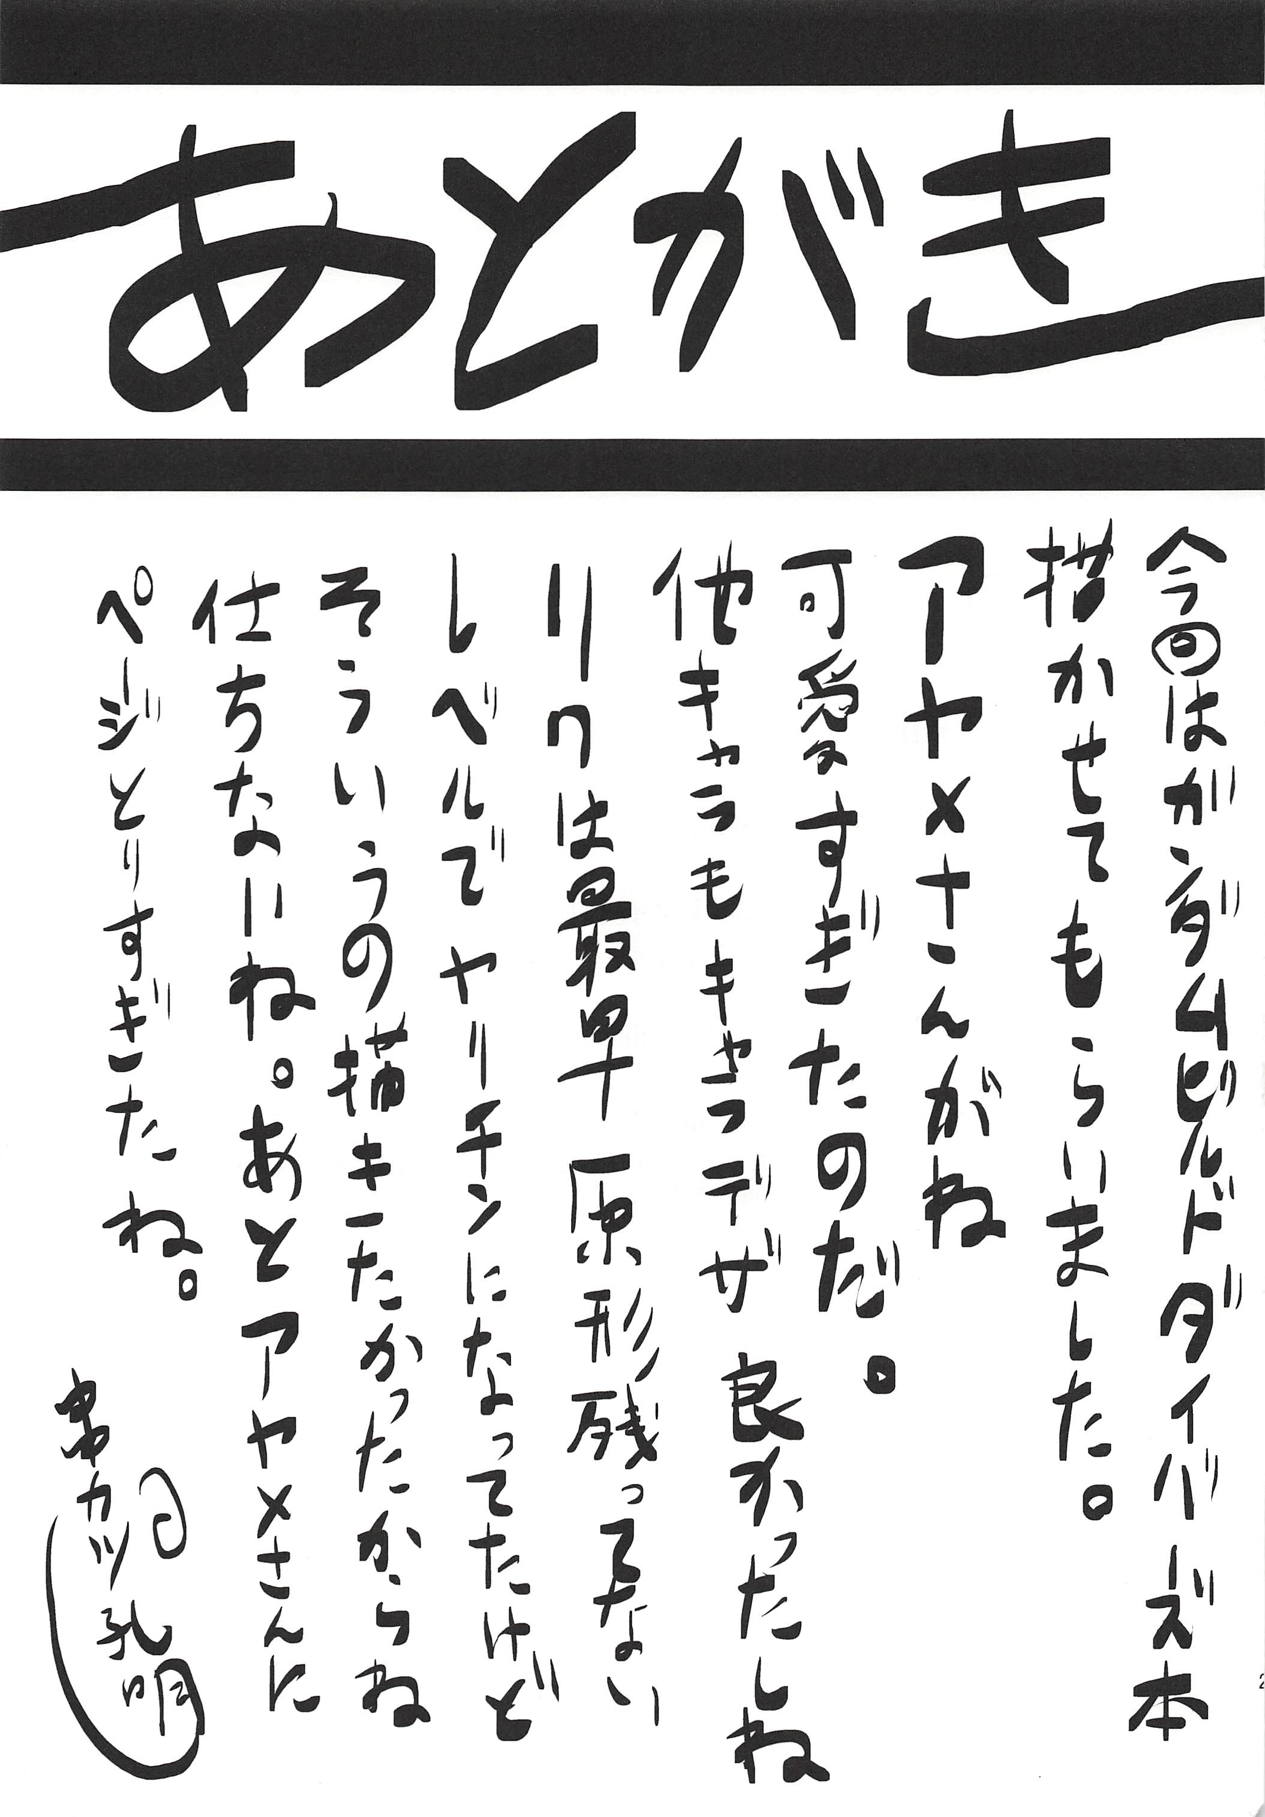 あとがき
今回はガンダムビルドダイバーズ本
描かせてもらいました。
アヤメさんがね
可愛すぎたのだ。
他キャラもキャラデザ良かったしね
リクは最早原形残ってない
レベルでヤリチンになってたけど
そういうの描きたかったからね
仕方ないね。あとアヤメさんに
ページとりすぎたね。
カツ孔明
2